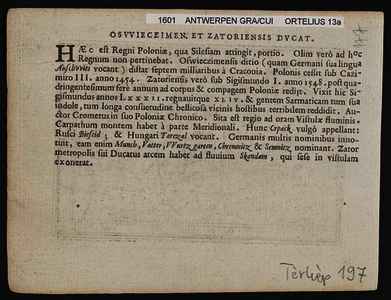 1601 ANTWERPEN GRA/CUI ORTELIUS 13a
OSVVIECZIMEN, ET ZATORIENSIS DVCAT.
HÆc est Regni Poloniæ, qua Silesiam attingit, portio. Olim verò ad hoc
Regnum non pertinebat. Oswiecimensis ditio (quam Germani sua lingua
vocant) distat septem milliaribus à Cracouia. Polonis cessit sub Cazi-
miro III. anno 1454. Zatoriensis verò sub Sigismundo I. anno 1548. post qua-
dringentesimum ferè annum ad corpus & compagem Poloniæ redijt. Vixit hic Si-
gismundus annos LXXXII. regnauitque XLIV. & gentem Sarmaticam tum sua
indole, tum longa consuetudine bellicosa vicinis hostibus terribilem reddidit. Au-
ctor Cromerus in suo Poloniæ Chronico. Sita est regio ad oram Vistulæ fluminis.
Carpathum montem habet à parte Meridionali. Hunc Crpack vulgò appellant:
Rusci Biescid; & Hungari Tarczal vocant. Germanis multis nominibus inno-
tuit, eam enim Munch, garten, Chremnitz & Schnitz nominant. Zator
metropolis sui Ducatus arcem habet ad fluuium Skandam, qui sese in vistulam
exonerat.
197